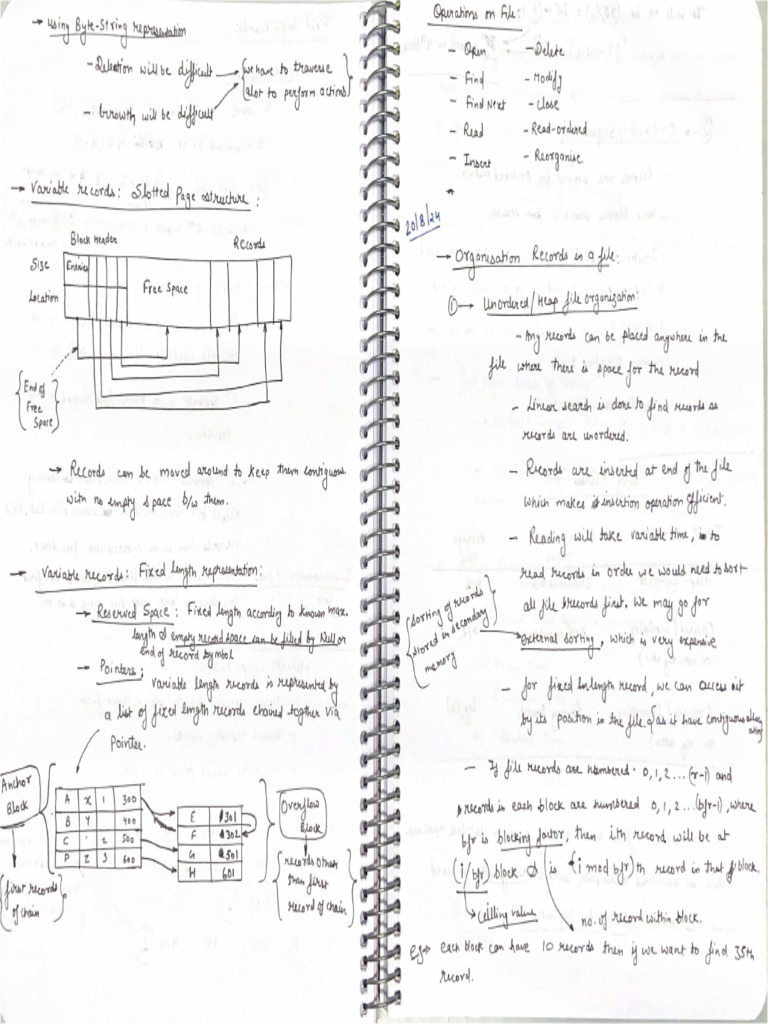 → Using Byte-String representation
- Deletion will be difficult → {we have to traverse
alot to perform actions}
Growth will be difficult
→ Variable records: Slotted Page structure:
Block Header Records
Size Entries
Free Space
Location
{End of
Free
Space}
→ Records can be moved around to keep them contiguous
with no empty space b/w them.
→ Variable records: Fixed length representation:
→ Reserved Space: Fixed length according to known max.
length & empty record space can be filled by Null or
end of record symbol
→ Pointers:
variable length records is represented by
a list of fixed length records chained together via
Pointer.
Anchor
Block
A X 1 300
B Y 400
C 2 500
P Z 3 600
{first records
of chain}
E 301
F 302
G 501
H 601
Overflow
Block
{records other
than first
record of chain}
Operations on File:
- Open - Delete
- Find - Modify
- Find Next - Close
- Read - Read-ordered
- Insert - Reorganise
20/8/24
→ Organisation Records in a file:
① → Unordered/Heap file organization:
- Any records can be placed anywhere in the
file where there is space for the record
- Linear search is done to find records as
records are unordered.
- Records are inserted at end of the file
which makes insertion operation efficient.
- Reading will take variable time, to
read records in order we would need to sort
all file records first. We may go for
external sorting, which is very expensive
{sorting of records
stored in secondary
memory}
- for fixed length record, we can access it
by its position in the file as it have contiguous
- If file records are numbered 0, 1, 2 ... (r-1) and
records in each block are numbered 0, 1, 2 ... (bfr-1), where
bfr is blocking factor, then ith record will be at
(i/bfr) block & is (i mod bfr)th record in that block.
→ ceiling value
no. of record within block.
eg→ each block can have 10 records then if we want to find 35th
record.